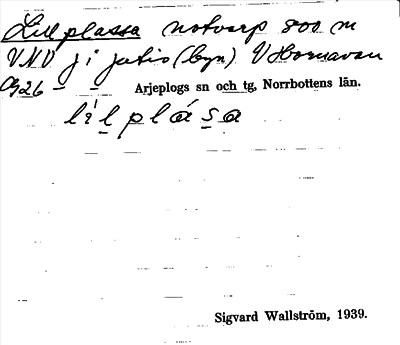 Lillplassa notvarp 800 m
VNV j i jutis (byn) V Hornavan
G26 Arjeplogs sn och tg, Norrbottens län.
lìlplása
Sigvard Wallström, 1939.